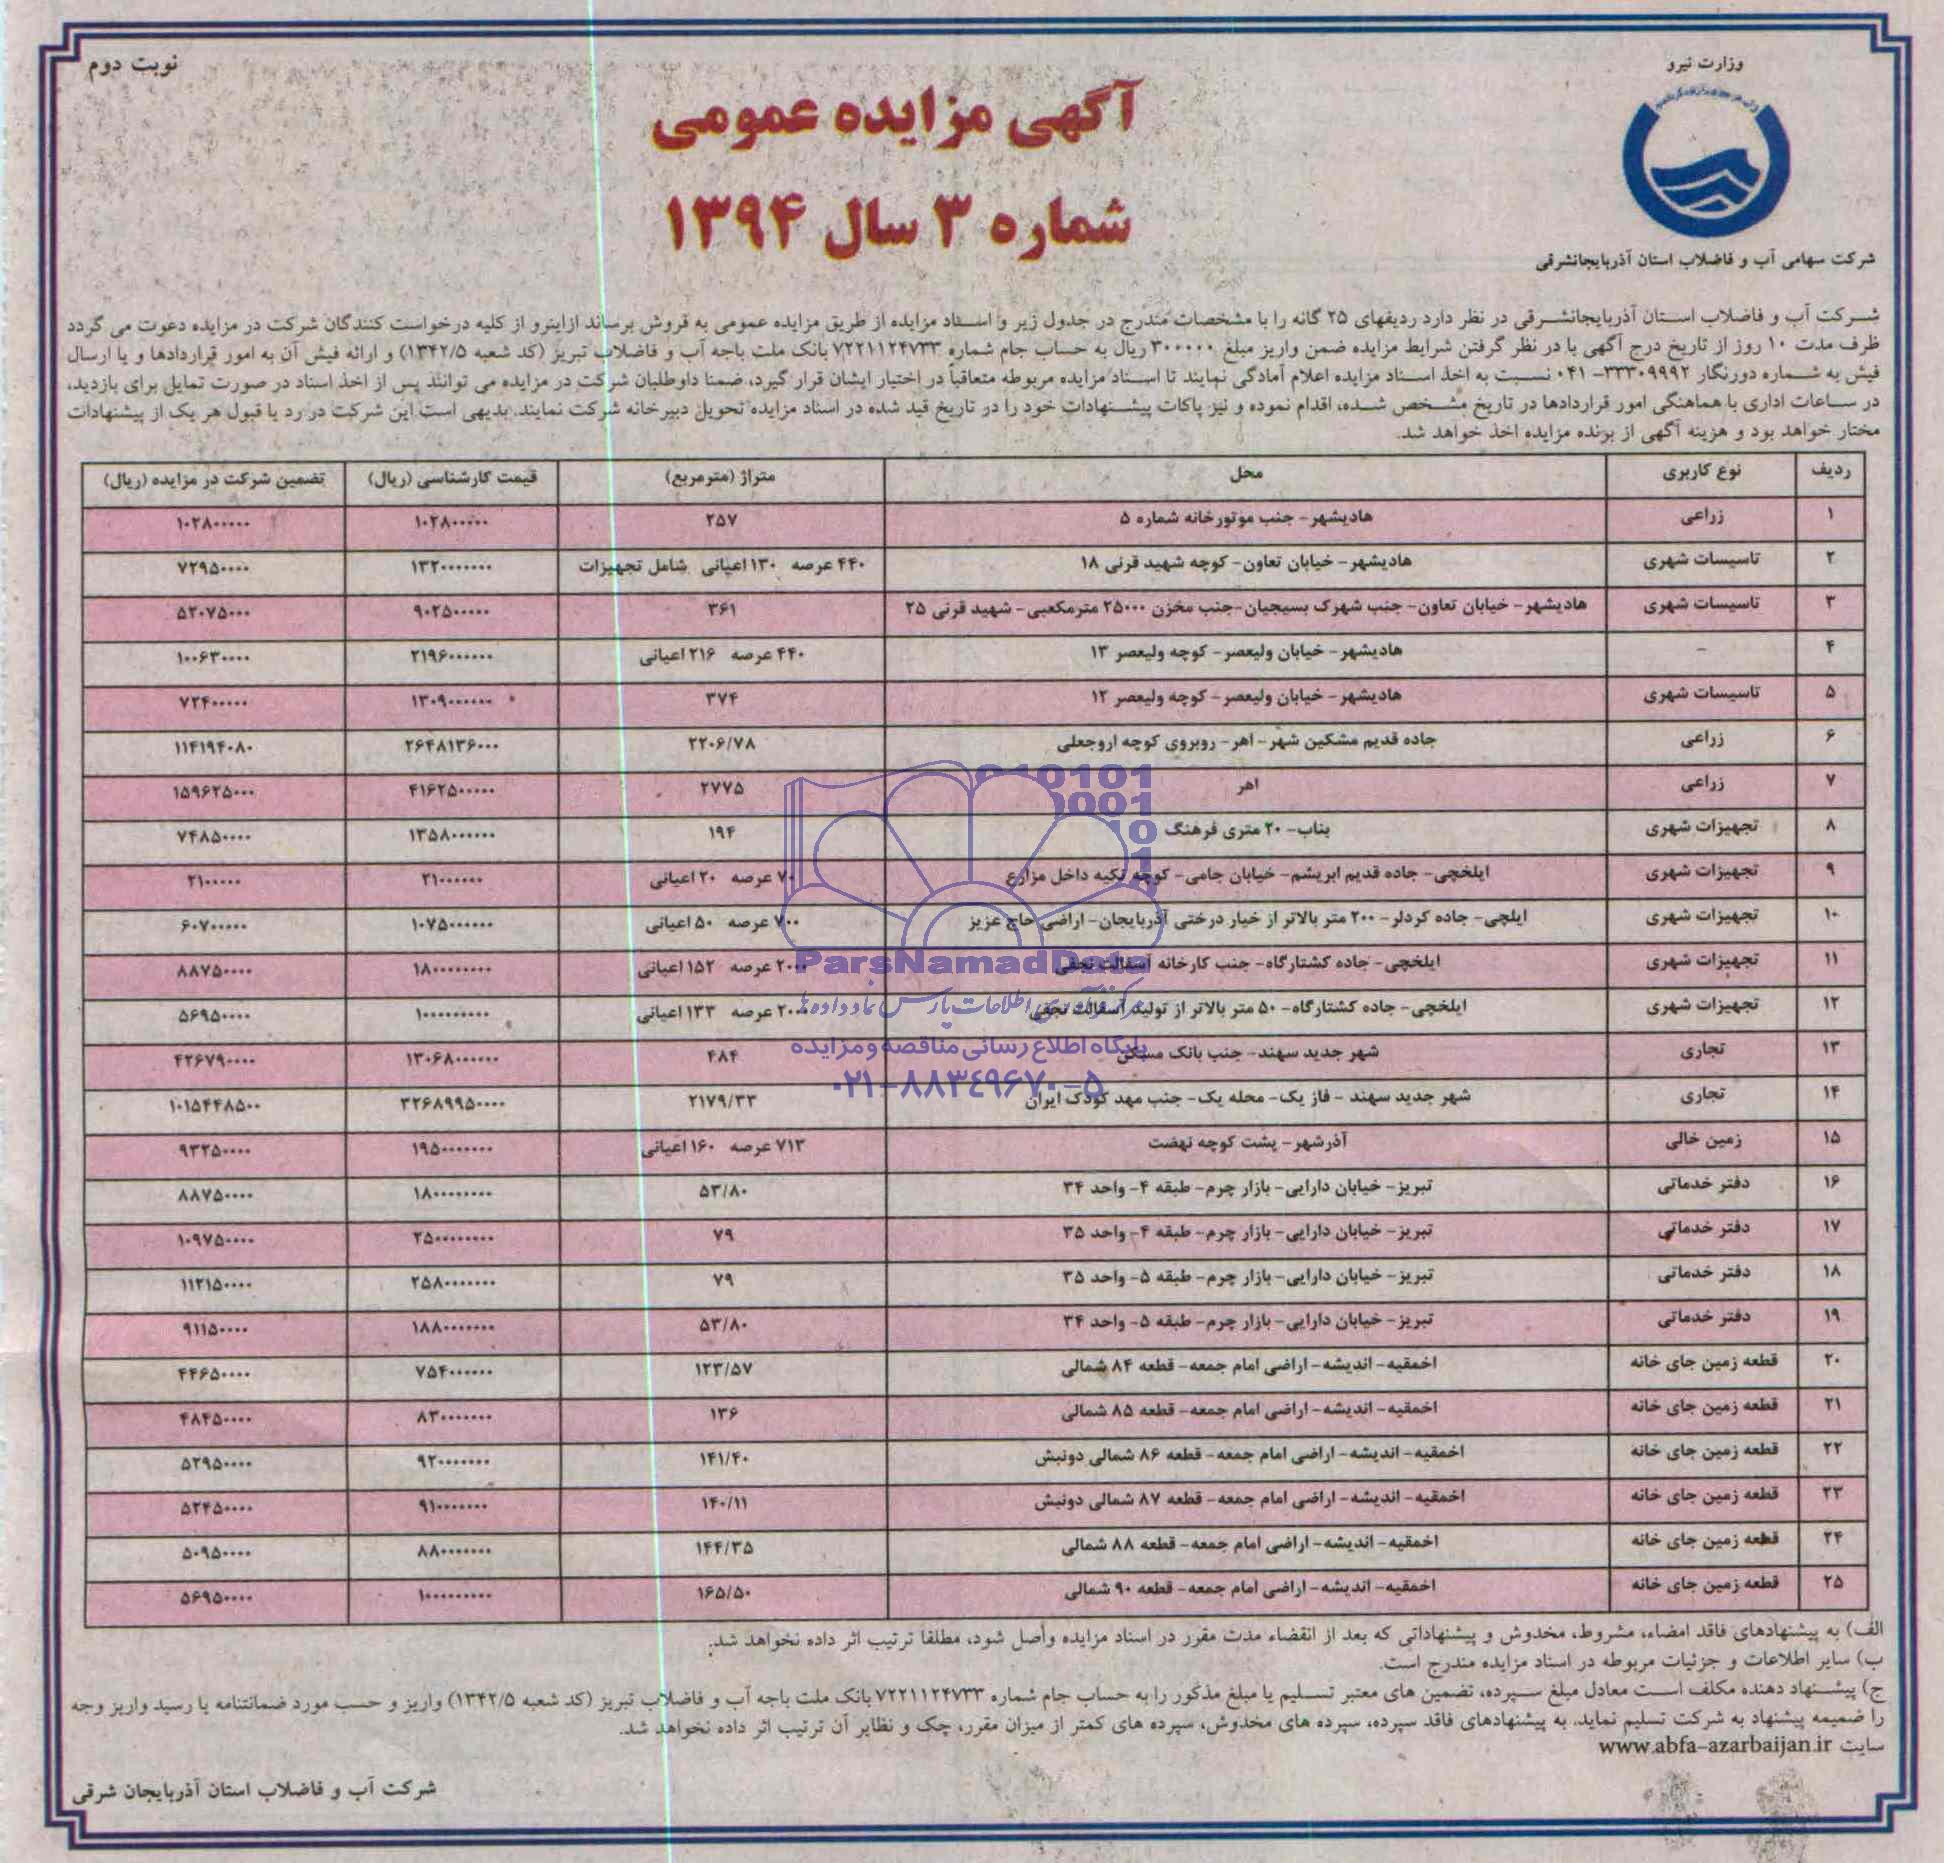 نوبت دوم
وزارت نیرو
شرکت سهامی آب و فاضلاب استان آذربایجانشرقی
آگهی مزایده عمومی
شماره ۳ سال ۱۳۹۴
شرکت آب و فاضلاب استان آذربایجانشرقی در نظر دارد ردیفهای ۲۵ گانه را با مشخصات مندرج در جدول زیر و اسناد مزایده از طریق مزایده عمومی به فروش برساند ازاینرو از کلیه درخواست کنندگان شرکت در مزایده دعوت می گردد
ظرف مدت ۱۰ روز از تاریخ درج آگهی با در نظر گرفتن شرایط مزایده ضمن واریز مبلغ ۳۰۰۰۰۰ ریال به حساب جام شماره ۷۲۲۱۱۲۴۷۳۳ بانک ملت باجه آب و فاضلاب تبریز (کد شعبه ۱۳۴۲/۵) و ارائه فیش آن به امور قراردادها و یا ارسال
فیش به شماره دورنگار ۳۳۳۰۹۹۹۲-۰۴۱ نسبت به اخذ اسناد مزایده اعلام آمادگی نمایند تا اسناد مزایده مربوطه متعاقباً در اختیار ایشان قرار گیرد، ضمنا داوطلبان شرکت در مزایده می توانند پس از اخذ اسناد در صورت تمایل برای بازدید،
در ساعات اداری با هماهنگی امور قراردادها در تاریخ مشخص شده، اقدام نموده و نیز پاکات پیشنهادات خود را در تاریخ قید شده در اسناد مزایده تحویل دبیرخانه شرکت نمایند. بدیهی است این شرکت در رد یا قبول هر یک از پیشنهادات
مختار خواهد بود و هزینه آگهی از برنده مزایده اخذ خواهد شد.
ردیف نوع کاربری محل متراژ (مترمربع) قیمت کارشناسی (ریال) تضمین شرکت در مزایده (ریال)
۱ زراعی هادیشهر- جنب موتورخانه شماره ۵ ۲۵۷ ۱۰۲۸۰۰۰۰۰ ۱۰۲۸۰۰۰۰۰
۲ تاسیسات شهری هادیشهر- خیابان تعاون- کوچه شهید قرنی ۱۸ ۴۴۰ عرصه ۱۳۰ اعیانی شامل تجهیزات ۱۳۲۰۰۰۰۰۰۰ ۷۲۹۵۰۰۰۰
۳ تاسیسات شهری هادیشهر- خیابان تعاون- جنب شهرک بسیجیان-جنب مخزن ۲۵۰۰۰ مترمکعبی- شهید قرنی ۲۵ ۳۶۱ ۹۰۲۵۰۰۰۰۰ ۵۲۰۷۵۰۰۰
۴ - هادیشهر- خیابان ولیعصر- کوچه ولیعصر ۱۳ ۴۴۰ عرصه ۲۱۶ اعیانی ۲۱۹۶۰۰۰۰۰۰ ۱۰۰۶۳۰۰۰۰
۵ تاسیسات شهری هادیشهر- خیابان ولیعصر- کوچه ولیعصر ۱۲ ۳۷۴ ۱۳۰۹۰۰۰۰۰۰ ۷۲۴۰۰۰۰۰
۶ زراعی جاده قدیم مشکین شهر- اهر- روبروی کوچه اروجعلی ۲۲۰۶/۷۸ ۲۶۴۸۱۳۶۰۰۰ ۱۱۴۱۹۴۰۸۰
۷ زراعی اهر ۲۷۷۵ ۴۱۶۲۵۰۰۰۰۰ ۱۵۹۶۲۵۰۰۰
۸ تجهیزات شهری بناب- ۲۰ متری فرهنگ ۱۹۴ ۱۳۵۸۰۰۰۰۰۰ ۷۴۸۵۰۰۰۰
۹ تجهیزات شهری ایلخچی- جاده قدیم ابریشم- خیابان جامی- کوچه تکیه داخل مزارع ۷۰ عرصه ۲۰ اعیانی ۲۱۰۰۰۰۰۰ ۲۱۰۰۰۰۰
۱۰ تجهیزات شهری ایلچی- جاده کردلر- ۲۰۰ متر بالاتر از خیار درختی آذربایجان- اراضی حاج عزیز ۷۰۰ عرصه ۵۰ اعیانی ۱۰۷۵۰۰۰۰۰۰ ۶۰۷۰۰۰۰۰
۱۱ تجهیزات شهری ایلخچی- جاده کشتارگاه- جنب کارخانه آسفالت نجفی ۲۰۰۰ عرصه ۱۵۲ اعیانی ۱۸۰۰۰۰۰۰۰۰ ۸۸۷۵۰۰۰۰
۱۲ تجهیزات شهری ایلخچی- جاده کشتارگاه- ۵۰ متر بالاتر از تولید آسفالت نجفی ۲۰۰۰ عرصه ۱۳۳ اعیانی ۱۰۰۰۰۰۰۰۰۰ ۵۶۹۵۰۰۰۰
۱۳ تجاری شهر جدید سهند- جنب بانک مسکن ۴۸۴ ۱۳۰۶۸۰۰۰۰۰۰ ۴۲۶۷۹۰۰۰۰
۱۴ تجاری شهر جدید سهند - فاز یک- محله یک- جنب مهد کودک ایران ۲۱۷۹/۳۳ ۳۲۶۸۹۹۵۰۰۰۰ ۱۰۱۵۴۴۸۵۰۰
۱۵ زمین خالی آذرشهر- پشت کوچه نهضت ۷۱۳ عرصه ۱۶۰ اعیانی ۱۹۵۰۰۰۰۰۰۰ ۹۳۲۵۰۰۰۰
۱۶ دفتر خدماتی تبریز- خیابان دارایی- بازار چرم- طبقه ۴- واحد ۳۴ ۵۳/۸۰ ۱۸۰۰۰۰۰۰۰۰ ۸۸۷۵۰۰۰۰
۱۷ دفتر خدماتی تبریز- خیابان دارایی- بازار چرم- طبقه ۴- واحد ۳۵ ۷۹ ۲۵۰۰۰۰۰۰۰۰ ۱۰۹۷۵۰۰۰۰
۱۸ دفتر خدماتی تبریز- خیابان دارایی- بازار چرم- طبقه ۵- واحد ۳۵ ۷۹ ۲۵۸۰۰۰۰۰۰۰ ۱۱۲۱۵۰۰۰۰
۱۹ دفتر خدماتی تبریز- خیابان دارایی- بازار چرم- طبقه ۵- واحد ۳۴ ۵۳/۸۰ ۱۸۸۰۰۰۰۰۰۰ ۹۱۱۵۰۰۰۰
۲۰ قطعه زمین جای خانه اخمقیه- اندیشه- اراضی امام جمعه- قطعه ۸۴ شمالی ۱۲۳/۵۷ ۷۵۴۰۰۰۰۰۰ ۴۴۶۵۰۰۰۰
۲۱ قطعه زمین جای خانه اخمقیه- اندیشه- اراضی امام جمعه- قطعه ۸۵ شمالی ۱۳۶ ۸۳۰۰۰۰۰۰۰ ۴۸۴۵۰۰۰۰
۲۲ قطعه زمین جای خانه اخمقیه- اندیشه- اراضی امام جمعه- قطعه ۸۶ شمالی دونبش ۱۴۱/۴۰ ۹۲۰۰۰۰۰۰۰ ۵۲۹۵۰۰۰۰
۲۳ قطعه زمین جای خانه اخمقیه- اندیشه- اراضی امام جمعه- قطعه ۸۷ شمالی دونبش ۱۴۰/۱۱ ۹۱۰۰۰۰۰۰۰ ۵۲۴۵۰۰۰۰
۲۴ قطعه زمین جای خانه اخمقیه- اندیشه- اراضی امام جمعه- قطعه ۸۸ شمالی ۱۴۴/۳۵ ۸۸۰۰۰۰۰۰۰ ۵۰۹۵۰۰۰۰
۲۵ قطعه زمین جای خانه اخمقیه- اندیشه- اراضی امام جمعه- قطعه ۹۰ شمالی ۱۶۵/۵۰ ۱۰۰۰۰۰۰۰۰۰ ۵۶۹۵۰۰۰۰
ParsNamadData
مرکز فرآوری اطلاعات پارس نماد داده ها
پایگاه اطلاع رسانی مناقصه و مزایده
۰۲۱-۸۸۳۴۹۶۷۰-۵
الف) به پیشنهادهای فاقد امضاء، مشروط، مخدوش و پیشنهاداتی که بعد از انقضاء مدت مقرر در اسناد مزایده واصل شود، مطلقا ترتیب اثر داده نخواهد شد.
ب) سایر اطلاعات و جزئیات مربوطه در اسناد مزایده مندرج است.
ج) پیشنهاد دهنده مکلف است معادل مبلغ سپرده، تضمین های معتبر تسلیم یا مبلغ مذکور را به حساب جام شماره ۷۲۲۱۱۲۴۷۳۳ بانک ملت باجه آب و فاضلاب تبریز (کد شعبه ۱۳۴۲/۵) واریز و حسب مورد ضمانتنامه یا رسید واریز وجه
را ضمیمه پیشنهاد به شرکت تسلیم نماید. به پیشنهادهای فاقد سپرده، سپرده های مخدوش، سپرده های کمتر از میزان مقرر، چک و نظایر آن ترتیب اثر داده نخواهد شد.
سایت www.abfa-azarbaijan.ir
شرکت آب و فاضلاب استان آذربایجان شرقی